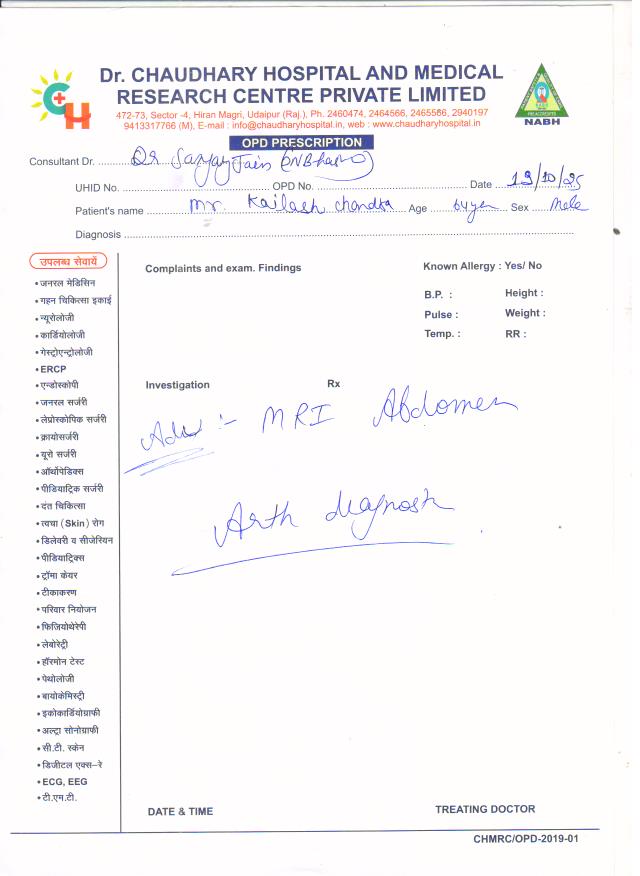 Dr. CHAUDHARY HOSPITAL AND MEDICAL
RESEARCH CENTRE PRIVATE LIMITED
472-73, Sector -4, Hiran Magri, Udaipur (Raj.), Ph. 2460474, 2464566, 2465566, 2940197
9413317766 (M), E-mail : info@chaudharyhospital.in, web : www.chaudharyhospital.in
PRE ACCREDITED
NABH
CH
OPD PRESCRIPTION
Consultant Dr. Dr Sanjay Jain
UHID No. OPD No. Date 13/10/25
Patient's name Mr. Kailash Chandra Age 64 yr Sex Male
Diagnosis
उपलब्ध सेवायें
• जनरल मेडिसिन
• गहन चिकित्सा इकाई
• न्यूरोलोजी
• कार्डियोलोजी
• गेस्ट्रोएन्ट्रोलोजी
• ERCP
• एन्डोस्कोपी
• जनरल सर्जरी
• लेप्रोस्कोपिक सर्जरी
• क्रायोसर्जरी
• यूरो सर्जरी
• ऑर्थोपेडिक्स
• पीडियाट्रिक सर्जरी
• दंत चिकित्सा
• त्वचा (Skin) रोग
• डिलेवरी व सीजेरियन
• पीडियाट्रिक्स
• ट्रॉमा केयर
• टीकाकरण
• परिवार नियोजन
• फिजियोथेरेपी
• लेबोरेट्री
• हॉरमोन टेस्ट
• पेथोलोजी
• बायोकेमिस्ट्री
• इकोकार्डियोग्राफी
• अल्ट्रा सोनोग्राफी
• सी.टी. स्केन
• डिजीटल एक्स-रे
• ECG, EEG
• टी.एम.टी.
Complaints and exam. Findings
Known Allergy : Yes/ No
B.P. : Height :
Pulse : Weight :
Temp. : RR :
Investigation Rx
Adv :- MRI Abdomen
Arth diagnosis
DATE & TIME TREATING DOCTOR
CHMRC/OPD-2019-01